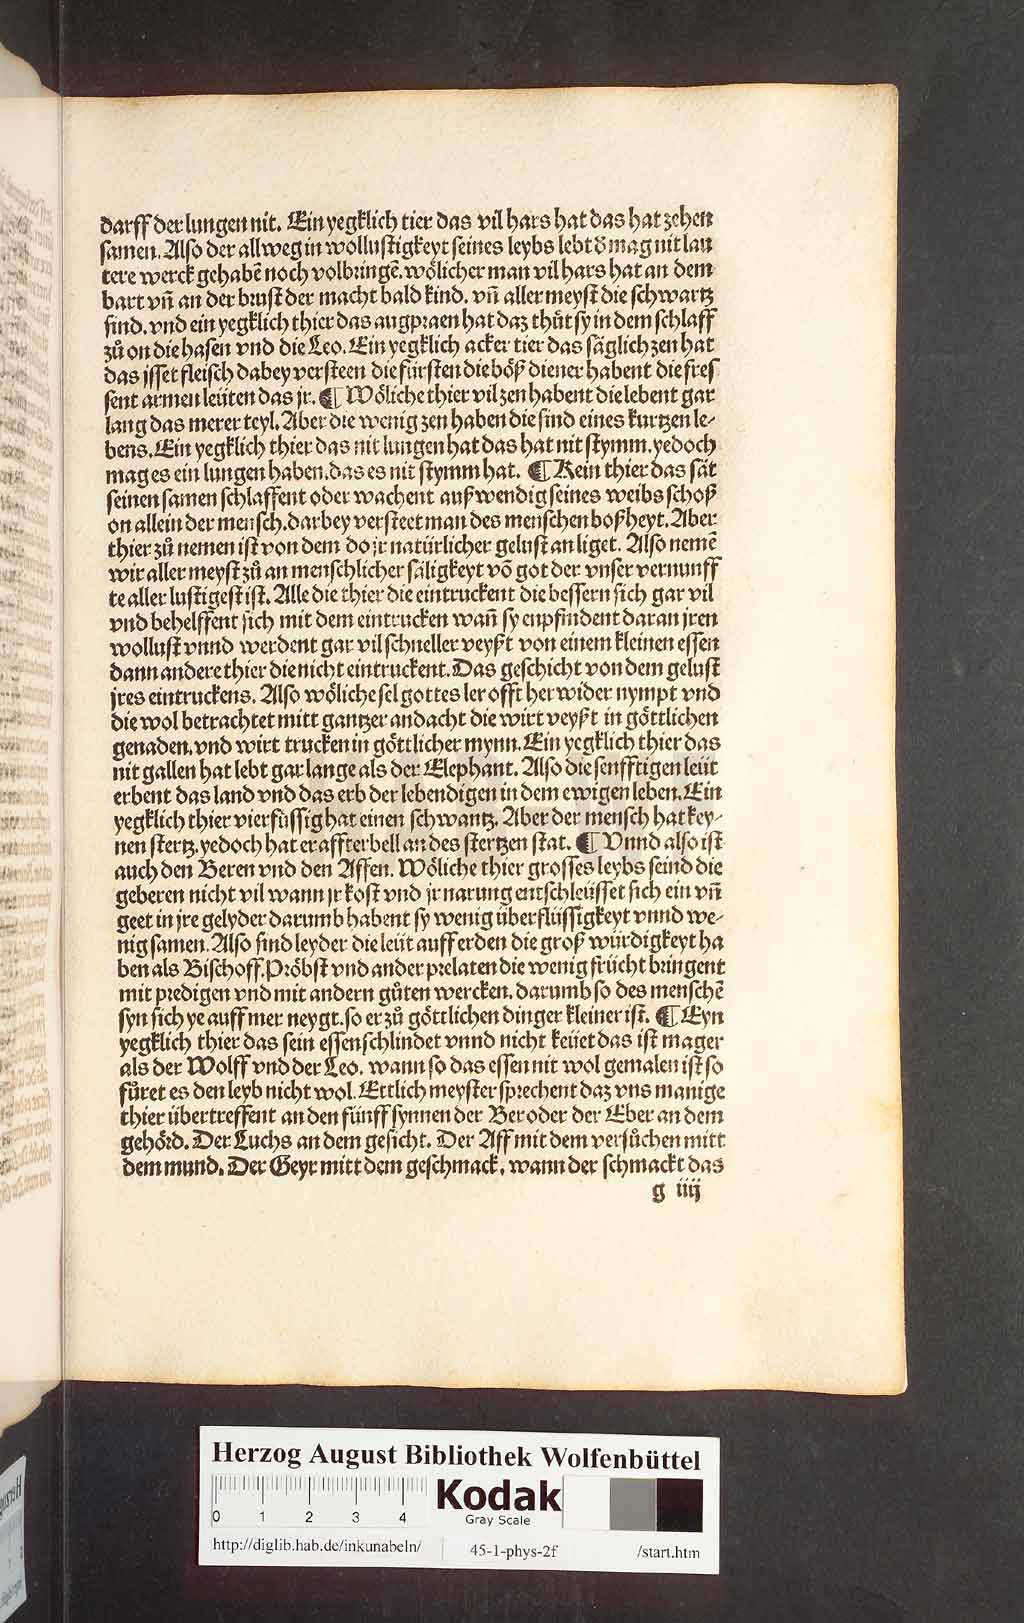 darff der lungen nit. Ein yegklich tier das vil hars hat das hat zehen
samen. Also der allweg in wollustigkeyt seines leybs lebt d̕ mag nit lau
tere werck gehabē noch volbringē. wölicher man vil hars hat an dem
bart vñ an der brust der macht bald kind. vñ aller meyst die schwartz
sind. vnd ein yegklich thier das augpraen hat daz thůt sy in dem schlaff
zů on die hasen vnd die Leo. Ein yegklich acker tier das säglich zen hat
das jsset fleisch dabey versteen die fürsten die böß diener habent die fres
sent armen leüten das jr. ¶ Wöliche thier vil zen habent die lebent gar
lang das merer teyl. Aber die wenig zen haben die sind eines kurtzen le-
bens. Ein yegklich thier das nit lungen hat das hat nit stymm. yedoch
mag es ein lungen haben. das es nit stymm hat. ¶ Kein thier das sät
seinen samen schlaffent oder wachent außwendig seines weibs schoß
on allein der mensch. darbey versteet man des menschen boßheyt. Aber
thier zů nemen ist von dem do jr natürlicher gelust an liget. Also nemē
wir aller meyst zů an menschlicher säligkeyt vō got der vnser vernunff
te aller lustigest ist. Alle die thier die eintruckent die bessern sich gar vil
vnd behelffent sich mit dem eintrucken wañ sy enpfindent daran jren
wollust vnnd werdent gar vil schneller veyßt von einem kleinen essen
dann andere thier die nicht eintruckent. Das geschicht von dem gelust
jres eintruckens. Also wöliche sel gottes ler offt her wider nympt vnd
die wol betrachtet mitt gantzer andacht die wirt veyßt in göttlichen
genaden. vnd wirt trucken in göttlicher mynn. Ein yegklich thier das
nit gallen hat lebt gar lange als der Elephant. Also die senfftigen leüt
erbent das land vnd das erb der lebendigen in dem ewigen leben. Ein
yegklich thier vierfüssig hat einen schwantz. Aber der mensch hat key-
nen stertz. yedoch hat er affterbell an des stertzen stat. ¶ Vnnd also ist
auch den Beren vnd den Affen. Wöliche thier grosses leybs seind die
geberen nicht vil wann jr kost vnd jr narung entschleüsset sich ein vñ
geet in jre gelyder darumb habent sy wenig überflüssigkeyt vnnd we-
nig samen. Also sind leyder die leüt auff erden die groß würdigkeyt ha
ben als Bischoff. Pröbst vnd ander prelaten die wenig frücht bringent
mit predigen vnd mit andern gůten wercken. darumb so des menschē
syn sich ye auff mer neygt. so er zů göttlichen dinger kleiner ist. ¶ Eyn
yegklich thier das sein essen schlindet vnnd nicht keüet das ist mager
als der Wolff vnd der Leo. wann so das essen nit wol gemalen ist so
fůret es den leyb nicht wol. Ettlich meyster sprechent daz vns manige
thier übertreffent an den fünff synnen der Ber oder der Eber an dem
gehörd. Der Luchs an dem gesicht. Der Aff mit dem versůchen mitt
dem mund. Der Geyr mitt dem geschmack, wann der schmackt das
g iiij
Herzog August Bibliothek Wolfenbüttel
0 1 2 3 4
Kodak
Gray Scale
http://diglib.hab.de/inkunabeln/ 45-1-phys-2f /start.htm